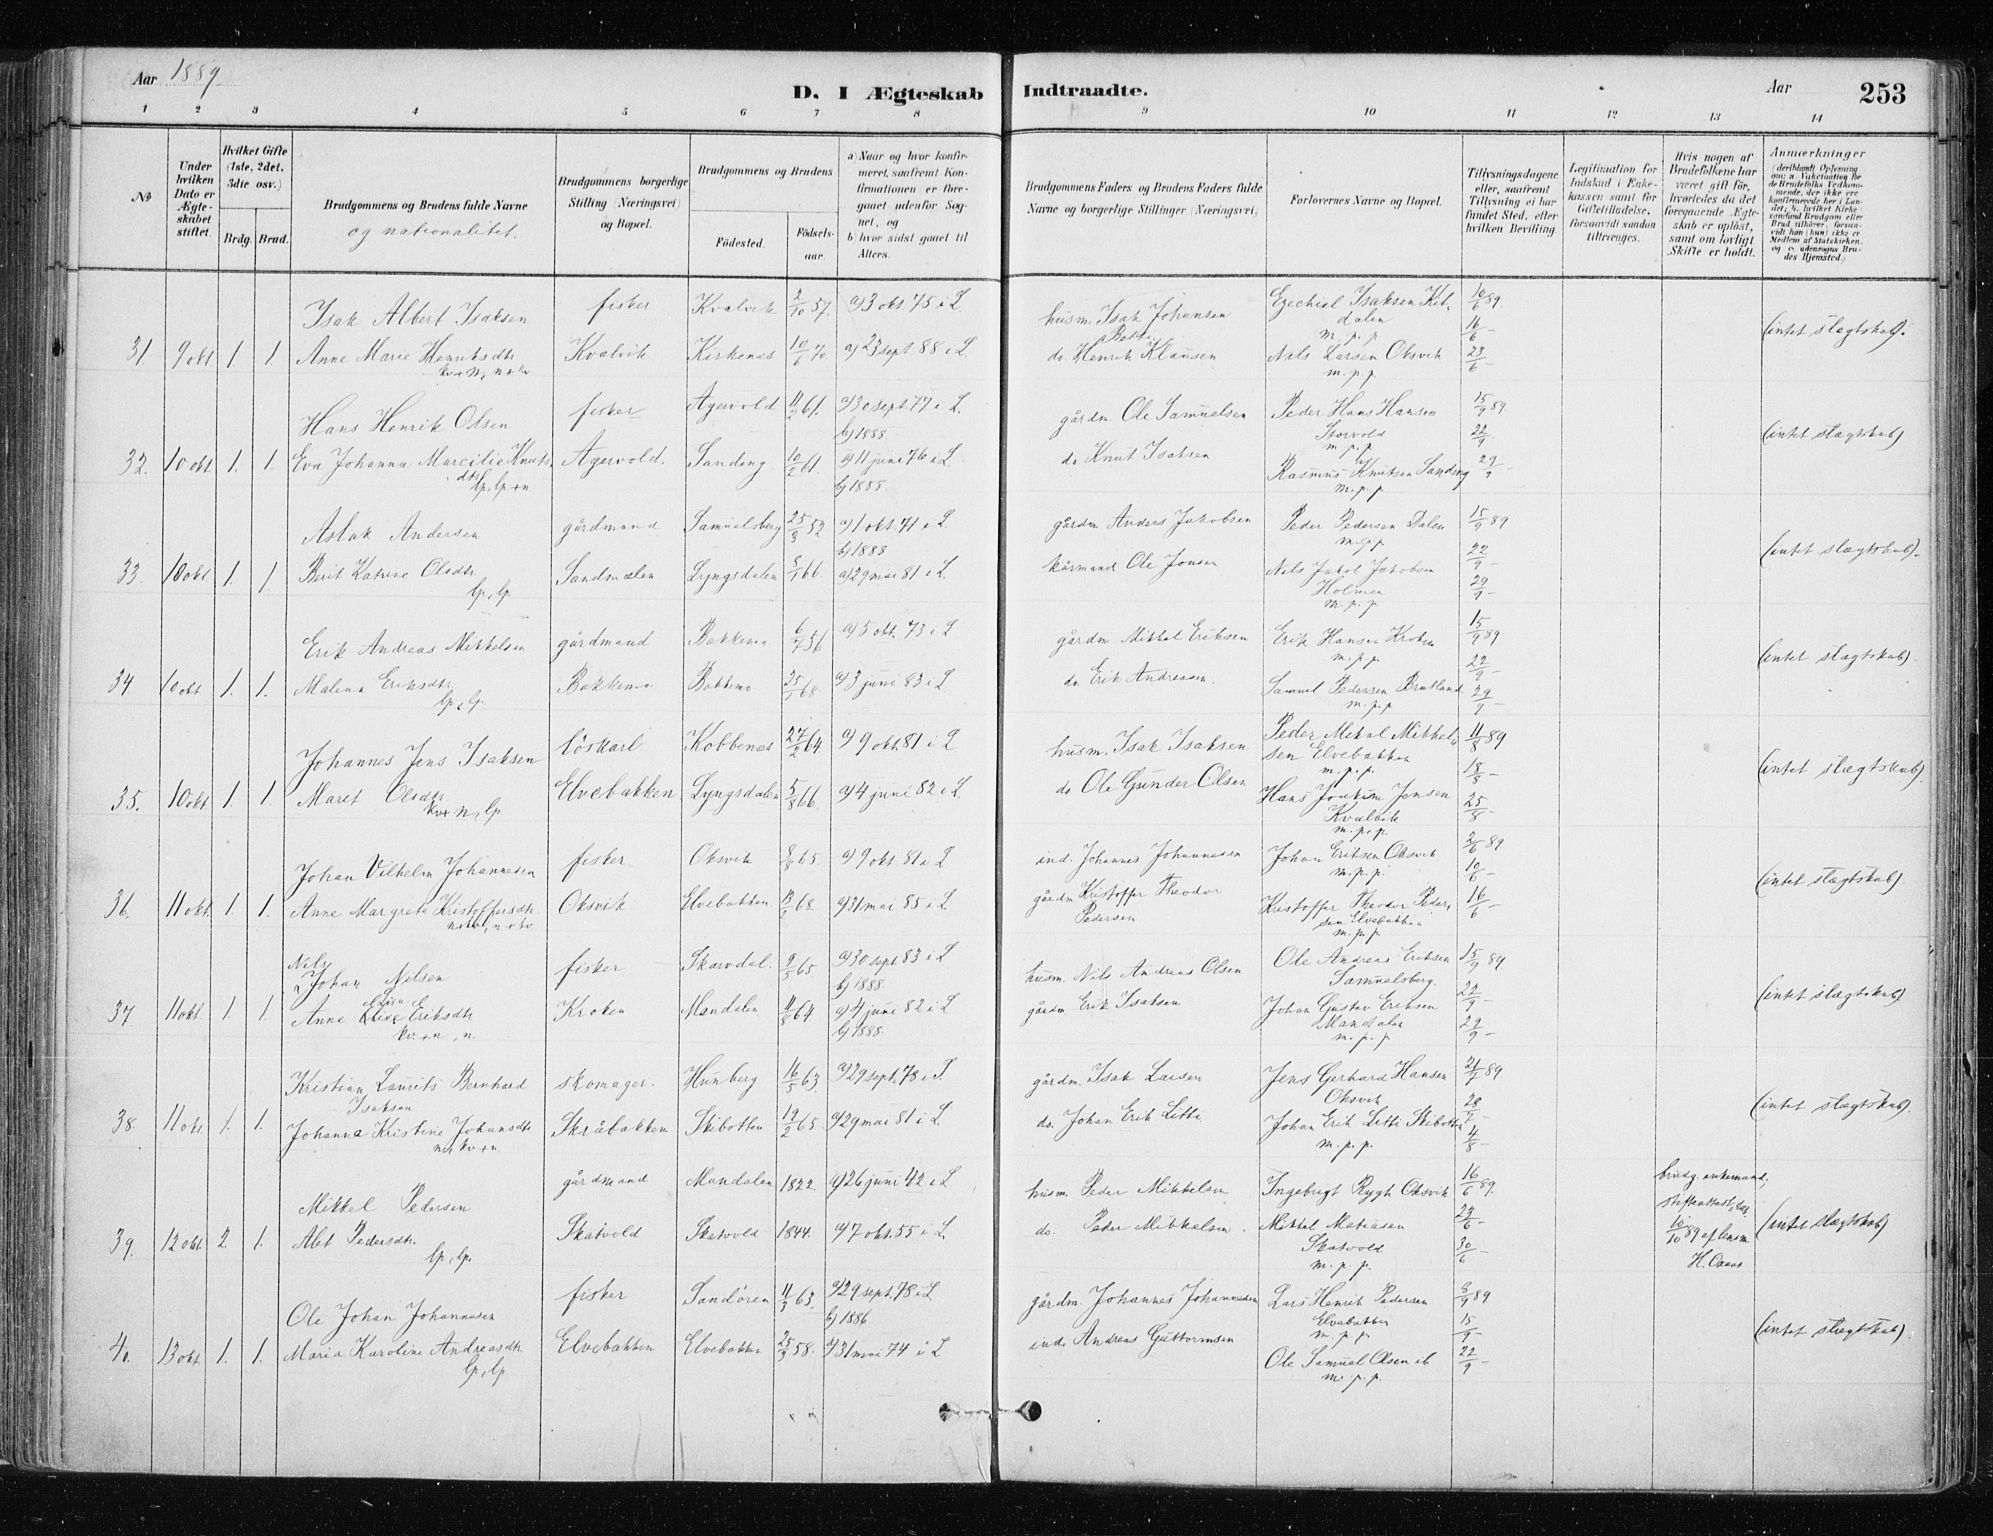 Aar 1889
D. I Ægteskab Indtraadte.
Aar
253
1 2 3 4 5 6 7 8 9 10 11 12 13 14
No
Under hvilken Dato er Ægteskabet stiftet.
Hvilket Gifte (1ste, 2det, 3die osv.)
Brdg. Brud.
Brudgommens og Brudens fulde Navne
og nationalitet.
Brudgommens borgerlige Stilling (Næringsvei) og Bopæl.
Brudgommens og Brudens
Födested. Födselsaar.
a) Naar og hvor konfirmeret, saafremt Konfirmationen er foregaaet udenfor Sognet, og
b) hvor sidst gaaet til Alters.
Brudgommens Faders og Brudens Faders fulde Navne og borgerlige Stillinger (Næringsvei)
Forlovernes Navne og Bopæl.
Tillysningsdagene eller, saafremt Tillysning ei har fundet Sted, efter hvilken Bevilling.
Legitimation for Indskud i Enkekassen samt for Giftetilladelse, forsaavidt saadan tiltrænges.
Hvis nogen af Brudefolkene har været gift för, hvorledes da det foregaaende Ægteskab er oplöst, samt om lovligt Skifte er holdt.
Anmærkninger
Isak Albert Isaksen fisker Kvalvik 2/10 57. a) 3 okt 75 i L. husm. Isak Johansen Ezechiel Isaksen Kit- 16/6 89
dalen
m.p.p 16/6 – (intet slægtskab).
31 9 okt 1. 1. Anne Marie Henriksdtr Kvalvik Kirkenes 10/6 70 a) 23 sept. 88 i L. do. Henrik Klausen Nils Larsen Oksvik 23/6 –
kv+n, n+kv m.p.p
Hans Henrik Olsen fisker Agervold 61. a) 30 sept. 77 i L. gårdm. Ole Samuelsen Peder Hans Hansen 15/9 89
b) 1888 Storvold 22/9 – (intet slægtskab)
m.p.p
32. 10 okt. 1. 1. Eva Johanna Marcilie Knuts- Agervold. Sandeng 10/2 61. a) 11 juni 76 i L. do Knut Isaksen Rasmus Knutsen Sandeng 29/9 –
dtr lp, lp+n b) 1888. m.p.p
Aslak Andersen gårdmand Samuelsberg 52 a) 1 okt. 71 i L. gårdm. Anders Jakobsen Peder Pedersen Dalen 15/9 89
b) 1888 m.p.p 22/9 – (intet slægtskab).
33. 10 okt 1. 1. Berit Katrine Olsdtr Sandmælen Lyngsdalen 66. a) 29 mai 81 i L. kårmand Ole Jonsen Nils Jakob Jakobsen 29/9 –
lp, lp. Holmen
m.p.p
Erik Andreas Mikkelsen gårdmand Bakkemo 6/7 56 a) 5 okt. 73 i L gårdm. Mikkel Eriksen Erik Hansen Kroken 15/9 89
m.p.p. 22/9 – (intet slægtskab).
34. 10 okt 1. 1. Malena Eriksdtr Bakkemo Bakkemo. 68. a) 3 juni 83 i L do Erik Andreasen. Samuel Pedersen Bratland 29/9 –
lp, lp. m.p.p
Johannes Jens Isaksen löskarl Kobbenes 64 a) 9 okt. 81 i L husm. Isak Isaksen Peder Mikal Mikkel- 11/8 89
sen Elvebakken
m.p.p. 18/8 – (intet slægtskab).
35. 10 okt 1. 1. Maret Olsdtr Elvebakken Lyngsdalen 5/8 66. a) 4 juni 82 i L. do Ole Gunder Olsen Hans Joakim Jensen 25/8 –
kv+n, lp Kvalvik
m.p.p.
Johan Vilhelm Johannesen fisker Oksvik 65. a) 9 okt 81 i L ind. Johannes Johannesen Johan Eriksen Oksvik 2/6 89
m.p.p. 10/6 – (intet slægtskab).
36. 11 okt. 1. 1. Anne Margrete Kristoffersdtr. Oksvik Elvebakken 68. a) 31 mai 85 i L. gårdm Kristoffer Theodor Pedersen Kristoffer Theodor Peder- 16/6 –
n+kv, n+kv. sen Elvebakken
m.p.p
Nils Johan Nilsen fisker Skarvdal. 65. a) 30 sept. 83 i L husm. Nils Andreas Olsen Ole Andreas Eriksen 15/9 89
b) 1888. Samuelsberg. 22/9 – (intet slægtskab)
37 11 okt 1. 1. Anne Eriksdtr Kroken Mandalen 11/8 64 a) 4 juni 82 i L gårdm. Erik Isaksen Johan Gustav Eriksen 29/9 –
kv.+n, n. b) 1888 Mandalen
m.p.p
Kristian Laurits Bernhard skomager. Hunberg 63. a) 29 sept. 78 i L. gårdm. Isak Larsen Jens Gerhard Hansen 21/7 89
Isaksen Oksvik 28/7 – (intet slægtskab).
38. 11 okt 1. 1. Johanna Kristine Johansdtr Skråbakken Skibotten 19/2 65 a) 29 mai 81 i L. do. Johan Erik Litti Johan Erik Litti Skibotten 4/8 –
n, kv+n. m.p.p.
Mikkel Pedersen gårdmand Mandalen 1822. a) 26 juni 42 i L husm. Peder Mikkelsen Ingebrigt Rygh Oksvik 16/6 89. brudg. enkemand;
skifteattest,
39. 12 okt 2 1. Abet Pedersdtr. Skatvold Skatvold 1844. a) 7 okt. 55 i L do. Peder Mikkelsen. Mikkel Matiasen 23/6 – 10/10 89 af lensm. (intet slægtskab)
lp, lp. Skatvold 30/6 – H.
m.p.p.
Ole Johan Johannesen fisker Sandören 11/3 63. a) 29 sept. 78 i L gårdm. Johannes Johannesen Lars Henrik Pedersen 89
b) 1886 Elvebakken 15/9 – (intet slægtskab)
m.p.p
40. 13 okt 1. 1. Maria Karoline Andreasdtr Elvebakken Elvebakken 25/3 58. a) 31 mai 74 i L ind. Andreas Guttormsen Ole Samuel Olsen ib 22/9 –
lp, lp m.p.p.